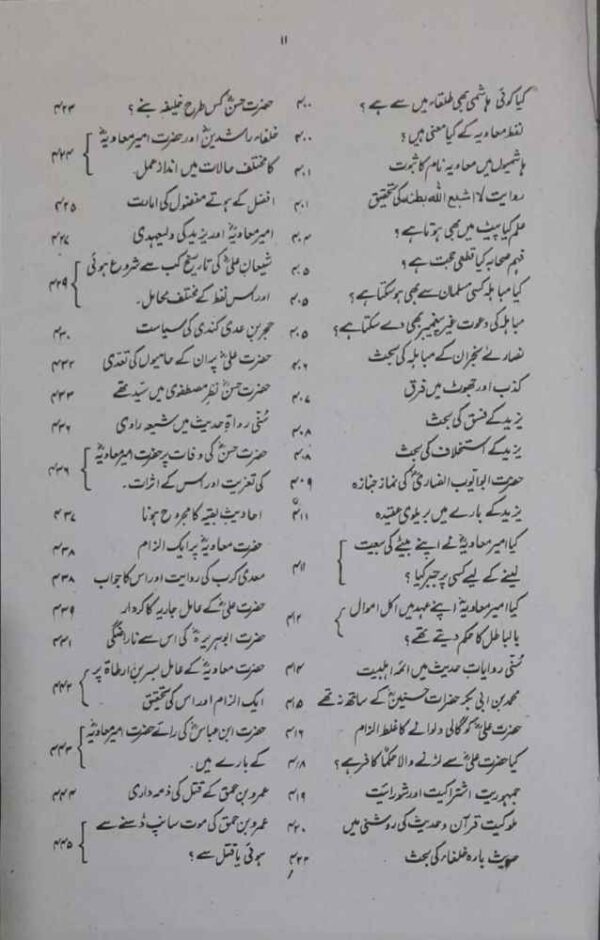 ۱۱
کیا کوئی ہاشمی بھی طلقاء میں سے ہے ؟ ۴۰۰
لفظ معاویہ کے کیا معنی ہیں ؟ ۴۰۰
ہاشمیوں میں معاویہ نام کا ثبوت ۴۰۱
روایت لا اشبع اللہ بطنہ کی تحقیق ۴۰۱
علم کیا پیٹ میں بھی ہوتا ہے ؟ ۴۰۴
فہم صحابہ کیا قطعی حجت ہے ؟ ۴۰۵
کیا مباہلہ کسی مسلمان سے بھی ہو سکتا ہے ؟ ۴۰۵
مباہلہ کی دعوت غیر پیغمبر بھی دے سکتا ہے ؟ ۴۰۵
نصارئے نجران کے مباہلہ کی بحث ۴۰۶
کذب اور جھوٹ میں فرق ۴۰۷
یزید کے فسق کی بحث ۴۰۸
یزید کے استخلاف کی بحث ۴۰۸
حضرت ابو ایوب انصاریؓ کی نماز جنازہ ۴۰۹
یزید کے بارے میں بریلوی عقیدہ ۴۱۱
کیا امیر معاویہؓ نے اپنے بیٹے کی بیعت
لینے کے لیے کسی پر جبر کیا ؟ ۴۱۱
کیا امیر معاویہؓ اپنے عہد میں اکل اموال
بالباطل کا حکم دیتے تھے ؟ ۴۱۲
سُنّی روایات حدیث میں ائمہ اہلبیت ۴۱۴
محمد بن ابی بکر حضرات حسنینؓ کے ساتھ نہ تھے ۴۱۵
حضرت علیؓ کو گالی دلوانے کا غلط الزام ۴۱۶
کیا حضرت علیؓ سے لڑنے والا حکماً کافر ہے ؟ ۴۱۸
جمہوریت اشتراکیت اور شورائیت ۴۱۹
ملوکیت قرآن و حدیث کی روشنی میں ۴۲۰
حدیث بارہ خلفاء کی بحث ۴۲۲
حضرت حسنؓ کس طرح خلیفہ بنے ؟ ۴۲۳
خلفاء راشدینؓ اور حضرت امیر معاویہؓ
کا مختلف حالات میں انداز عمل. ۴۲۴
افضل کے ہوتے مفضول کی امارت ۴۲۵
امیر معاویہؓ اور یزید کی ولیعہدی ۴۲۷
شیعان علیؓ کی تاریخ کب سے شروع ہوئی
اور اس لفظ کے مختلف محامل. ۴۲۹
حجر بن عدی کندی کی سیاست ۴۳۰
حضرت علیؓ پر ان کے حامیوں کی تعدّی ۴۳۲
حضرت حسنؓ نظر مصطفوی میں سیّد تھے ۴۳۳
سُنّی رواۃ حدیث میں شیعہ راوی ۴۳۶
حضرت حسنؓ کی وفات پر حضرت امیر معاویہؓ
کی تعزیت اور اس کے اثرات. ۴۳۶
احادیث بقیہ کا مجروح ہونا ۴۳۷
حضرت معاویہؓ پر ایک الزام ۴۳۸
معدی کرب کی روایت اور اس کا جواب ۴۳۸
حضرت علیؓ کے عامل جاریہ کا کردار ۴۳۹
حضرت ابوہریرہؓ کی اس سے ناراضگی ۴۴۱
حضرت معاویہؓ کے عامل بسر بن ارطاۃ پر
ایک الزام اور اس کی تحقیق ۴۴۲
حضرت ابن عباسؓ کی رائے حضرت امیر معاویہؓ
کے بارے میں. ۴۴۳
عمرو بن حمق کے قتل کی ذمہ داری ۴۴۴
عمرو بن حمق کی موت سانپ ڈسنے سے
ہوئی یا قتل سے ؟ ۴۴۵